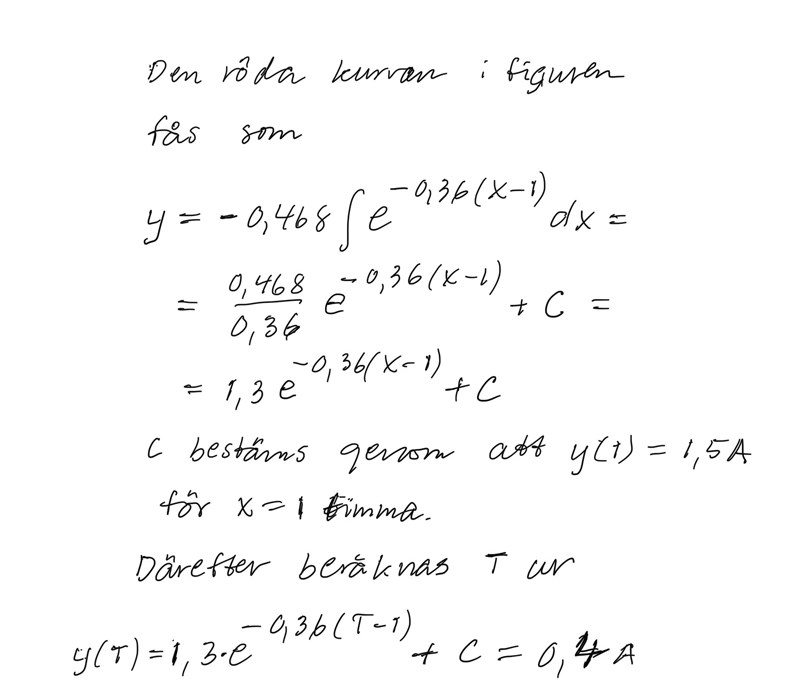 Den röda kurvan i figuren
fås som
y = -0,468 ∫ e^{-0,36(x-1)} dx =
= \frac{0,468}{0,36} e^{-0,36(x-1)} + C =
= 1,3 e^{-0,36(x-1)} + C
C bestäms genom att y(1) = 1,5A
för x = 1 timma.
Därefter beräknas T ur
y(T) = 1,3·e^{-0,36(T-1)} + C = 0,4 A